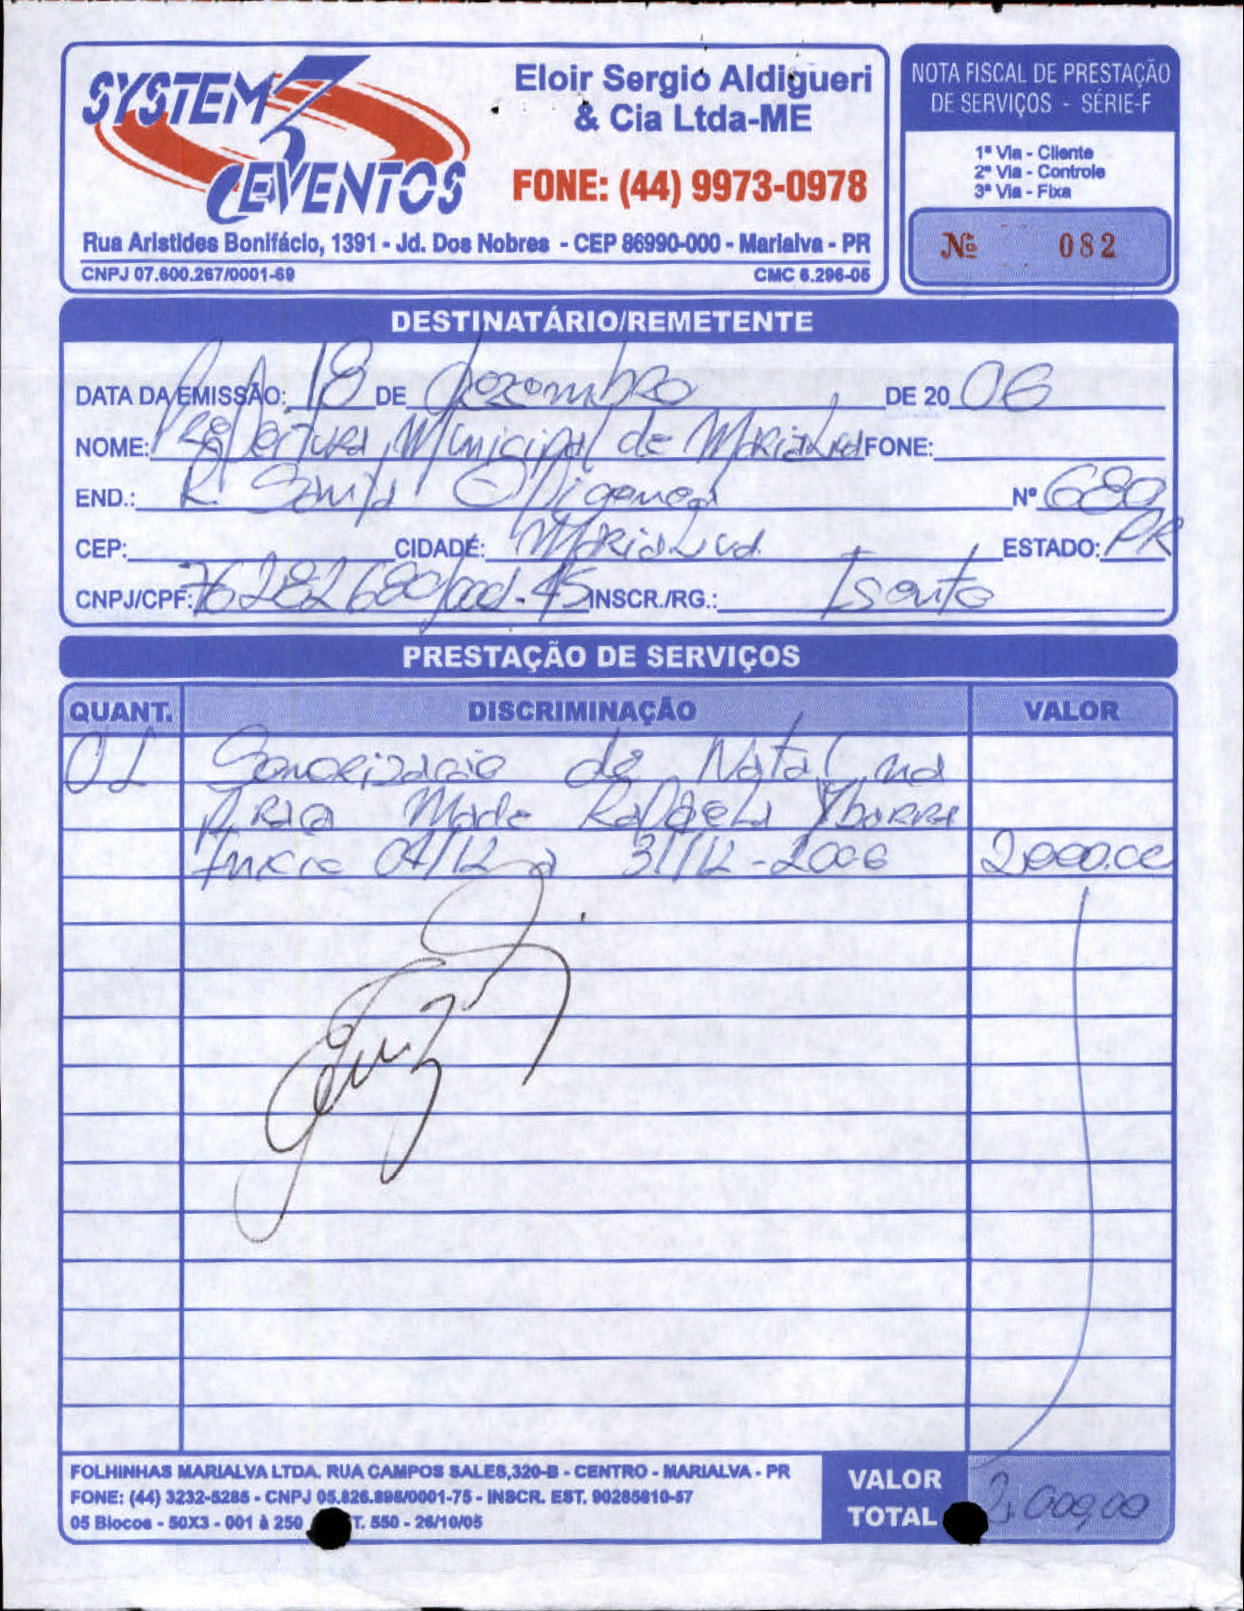 SYSTEM 3 EVENTOS
Eloir Sergio Aldigueri
& Cia Ltda-ME
FONE: (44) 9973-0978
Rua Aristides Bonifácio, 1391 - Jd. Dos Nobres - CEP 86990-000 - Marialva - PR
CNPJ 07.600.267/0001-69 CMC 6.296-05
NOTA FISCAL DE PRESTAÇÃO
DE SERVIÇOS - SÉRIE-F
1ª Via - Cliente
2ª Via - Controle
3ª Via - Fixa
Nº 082
DESTINATÁRIO/REMETENTE
DATA DA EMISSÃO: 18 DE Dezembro DE 20 06
NOME: Prefeitura Municipal de Marialva FONE:
END.: R Santa Efigenea Nº 680
CEP: CIDADE: Marialva ESTADO: PR
CNPJ/CPF: 76282680/0001-45 INSCR./RG.: Isento
PRESTAÇÃO DE SERVIÇOS
QUANT. DISCRIMINAÇÃO VALOR
01 Sonorização de Natal na
Praça Made Rafaela Ybarra
Inicio 04/12 a 31/12-2006 2.000.00
FOLHINHAS MARIALVA LTDA. RUA CAMPOS SALES,320-B - CENTRO - MARIALVA - PR
FONE: (44) 3232-5285 - CNPJ 05.826.898/0001-75 - INSCR. EST. 90285810-57
05 Blocos - 50X3 - 001 à 250 T. 550 - 26/10/05
VALOR
TOTAL 2.000,00